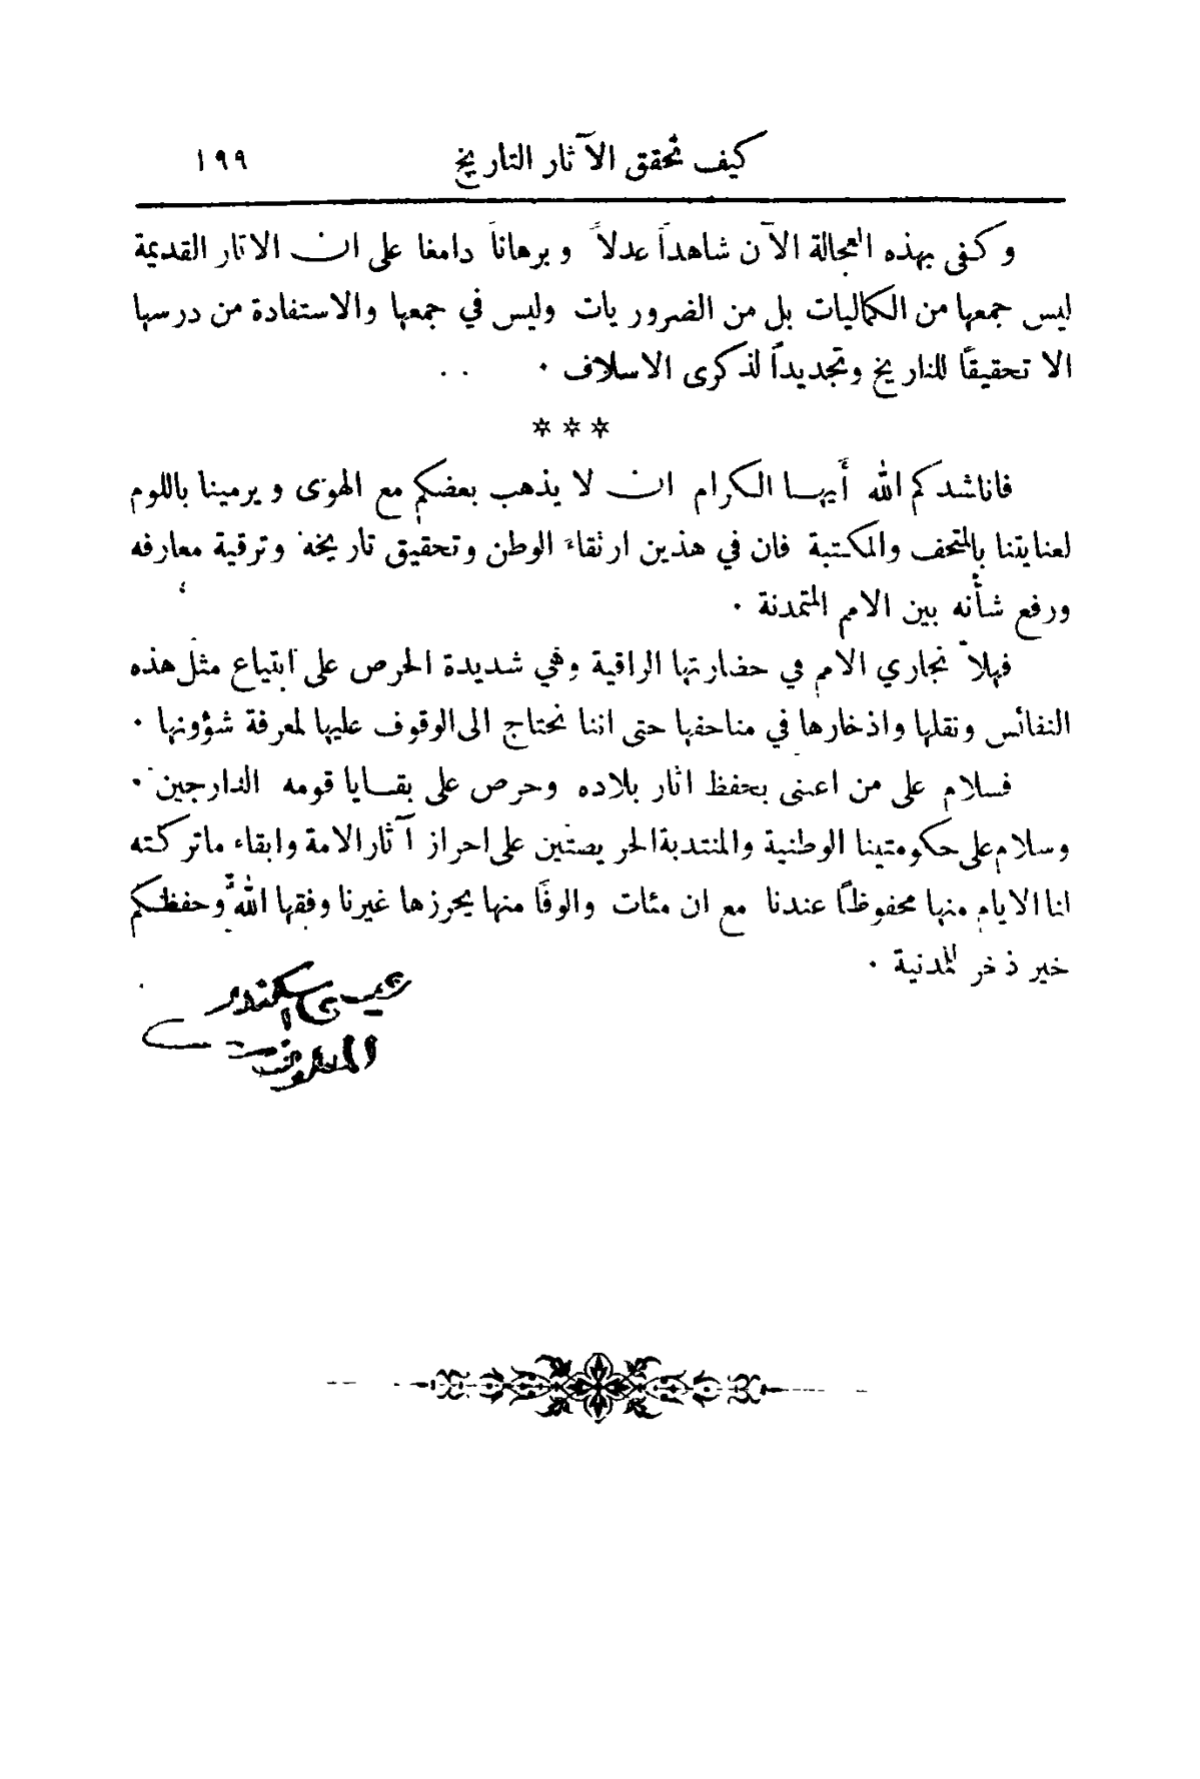 كيف تحقق الآثار التاريخ ١٩٩
وكفى بهذه العجالة الآن شاهداً عدلاً وبرهاناً دامغا على ان الاثار القديمة
ليس جمعها من الكماليات بل من الضروريات وليس في جمعها والاستفادة من درسها
الا تحقيقاً للتاريخ وتجديداً لذكرى الاسلاف ٠
* * *
فاناشدكم الله أيها الكرام ان لا يذهب بعضكم مع الهوى ويرمينا باللوم
لعنايتنا بالمتحف والمكتبة فان في هذين ارتقاء الوطن وتحقيق تاريخه وترقية معارفه
ورفع شأنه بين الامم المتمدنة ٠
فهلاّ نجاري الامم في حضارتها الراقية وهي شديدة الحرص على ابتياع مثل هذه
النفائس ونقلها واذخارها في متاحفها حتى اننا نحتاج الى الوقوف عليها لمعرفة شؤونها ٠
فسلام على من اعتنى بحفظ اثار بلاده وحرص على بقايا قومه الدارجين ٠
وسلام على حكومتينا الوطنية والمنتدبة الحريصتين على احراز آثار الامة وابقاء ما تركته
لنا الايام منها محفوظاً عندنا مع ان مئات والوفاً منها يحرزها غيرنا وفقها الله وحفظكم
خير ذخر للمدنية ٠
عيسى اسكندر
المعلوف